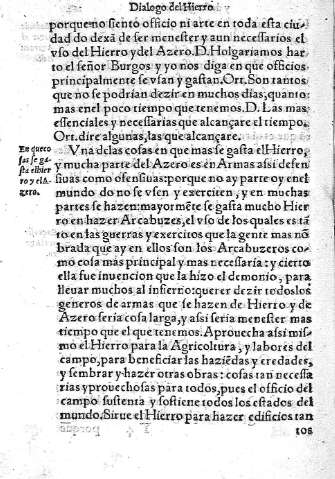 Dialogo del Hierro
porque no siento officio ni arte en toda esta ciu-
dad do dexã de ser menester y aun necessarios el
vso del Hierro y del Azero. D. Holgariamos har
to el señor Burgos y yo nos diga en que officios
principalmente se vsan y gastan. Ort. Son tantos
que no se podrian dezir en muchos dias, quanto
mas en el poco tiempo que tenemos. D. Las mas
essenciales y necessarias que alcançare el tiempo.
Ort. dire algunas, las que alcançare.
En que co
sas se ga-
sta el hier
ro y el A-
zero.
Vna de las cosas en que mas se gasta el Hierro,
y mucha parte del Azero es en Armas assi defen
siuas como ofensiuas: porque no ay parte oy en el
mundo do no se vsen y exerciten, y en muchas
partes se hazen: mayormẽte se gasta mucho Hier
ro en hazer Arcabuzes, el vso de los quales es tã
to en las guerras y exercitos que la gente mas nõ
brada que ay en ellos son los Arcabuzeros co-
mo cosa mas principal y mas necessaria: y cierto
ella fue inuencion que la hizo el demonio, para
lleuar muchos al infierno: querer dezir todos los
generos de armas que se hazen de Hierro y de
Azero seria cosa larga, y assi seria menester mas
tiempo que el que tenemos. Aprouecha assi mis-
mo el Hierro para la Agricultura, y labores del
campo, para beneficiar las haziẽdas y eredades,
y sembrar y hazer otras obras: cosas tan necessa
rias y prouechosas para todos, pues el officio del
campo sustenta y sostiene todos los estados del
mundo. Sirue el Hierro para hazer edificios tan
108